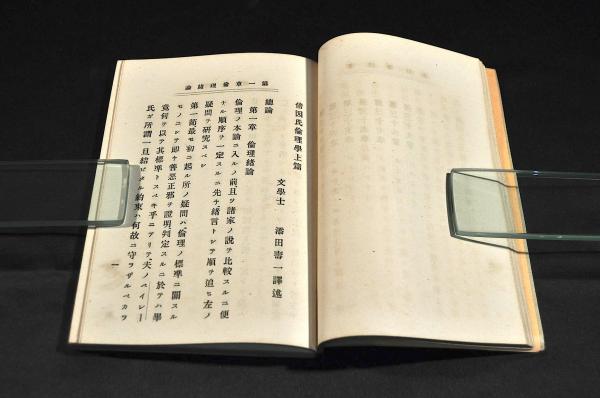 第一章倫理緒論
倍因氏倫理學上篇
文學士 添田壽一譯述
總論
第一章 倫理緒論
倫理ノ本論ニ入ルノ前且ツ諸家ノ説ヲ比較スルニ便
ナル順序ヲ一定スルニ先チ緒言トシテ順ヲ追ヒ左ノ
疑問ヲ研究スベシ
第一箇最モ初ニ起ル所ノ疑問ハ倫理ノ標準ニ關スル
モノニシテ即チ善惡正邪ヲ證明判定スルニ於テハ畢
竟何ヲ以テ其標準トスベキ乎ニアリテ夫ノペイレー
氏ガ所謂一旦結ビタル約束ハ何故ニ守ラザルベカラ
一